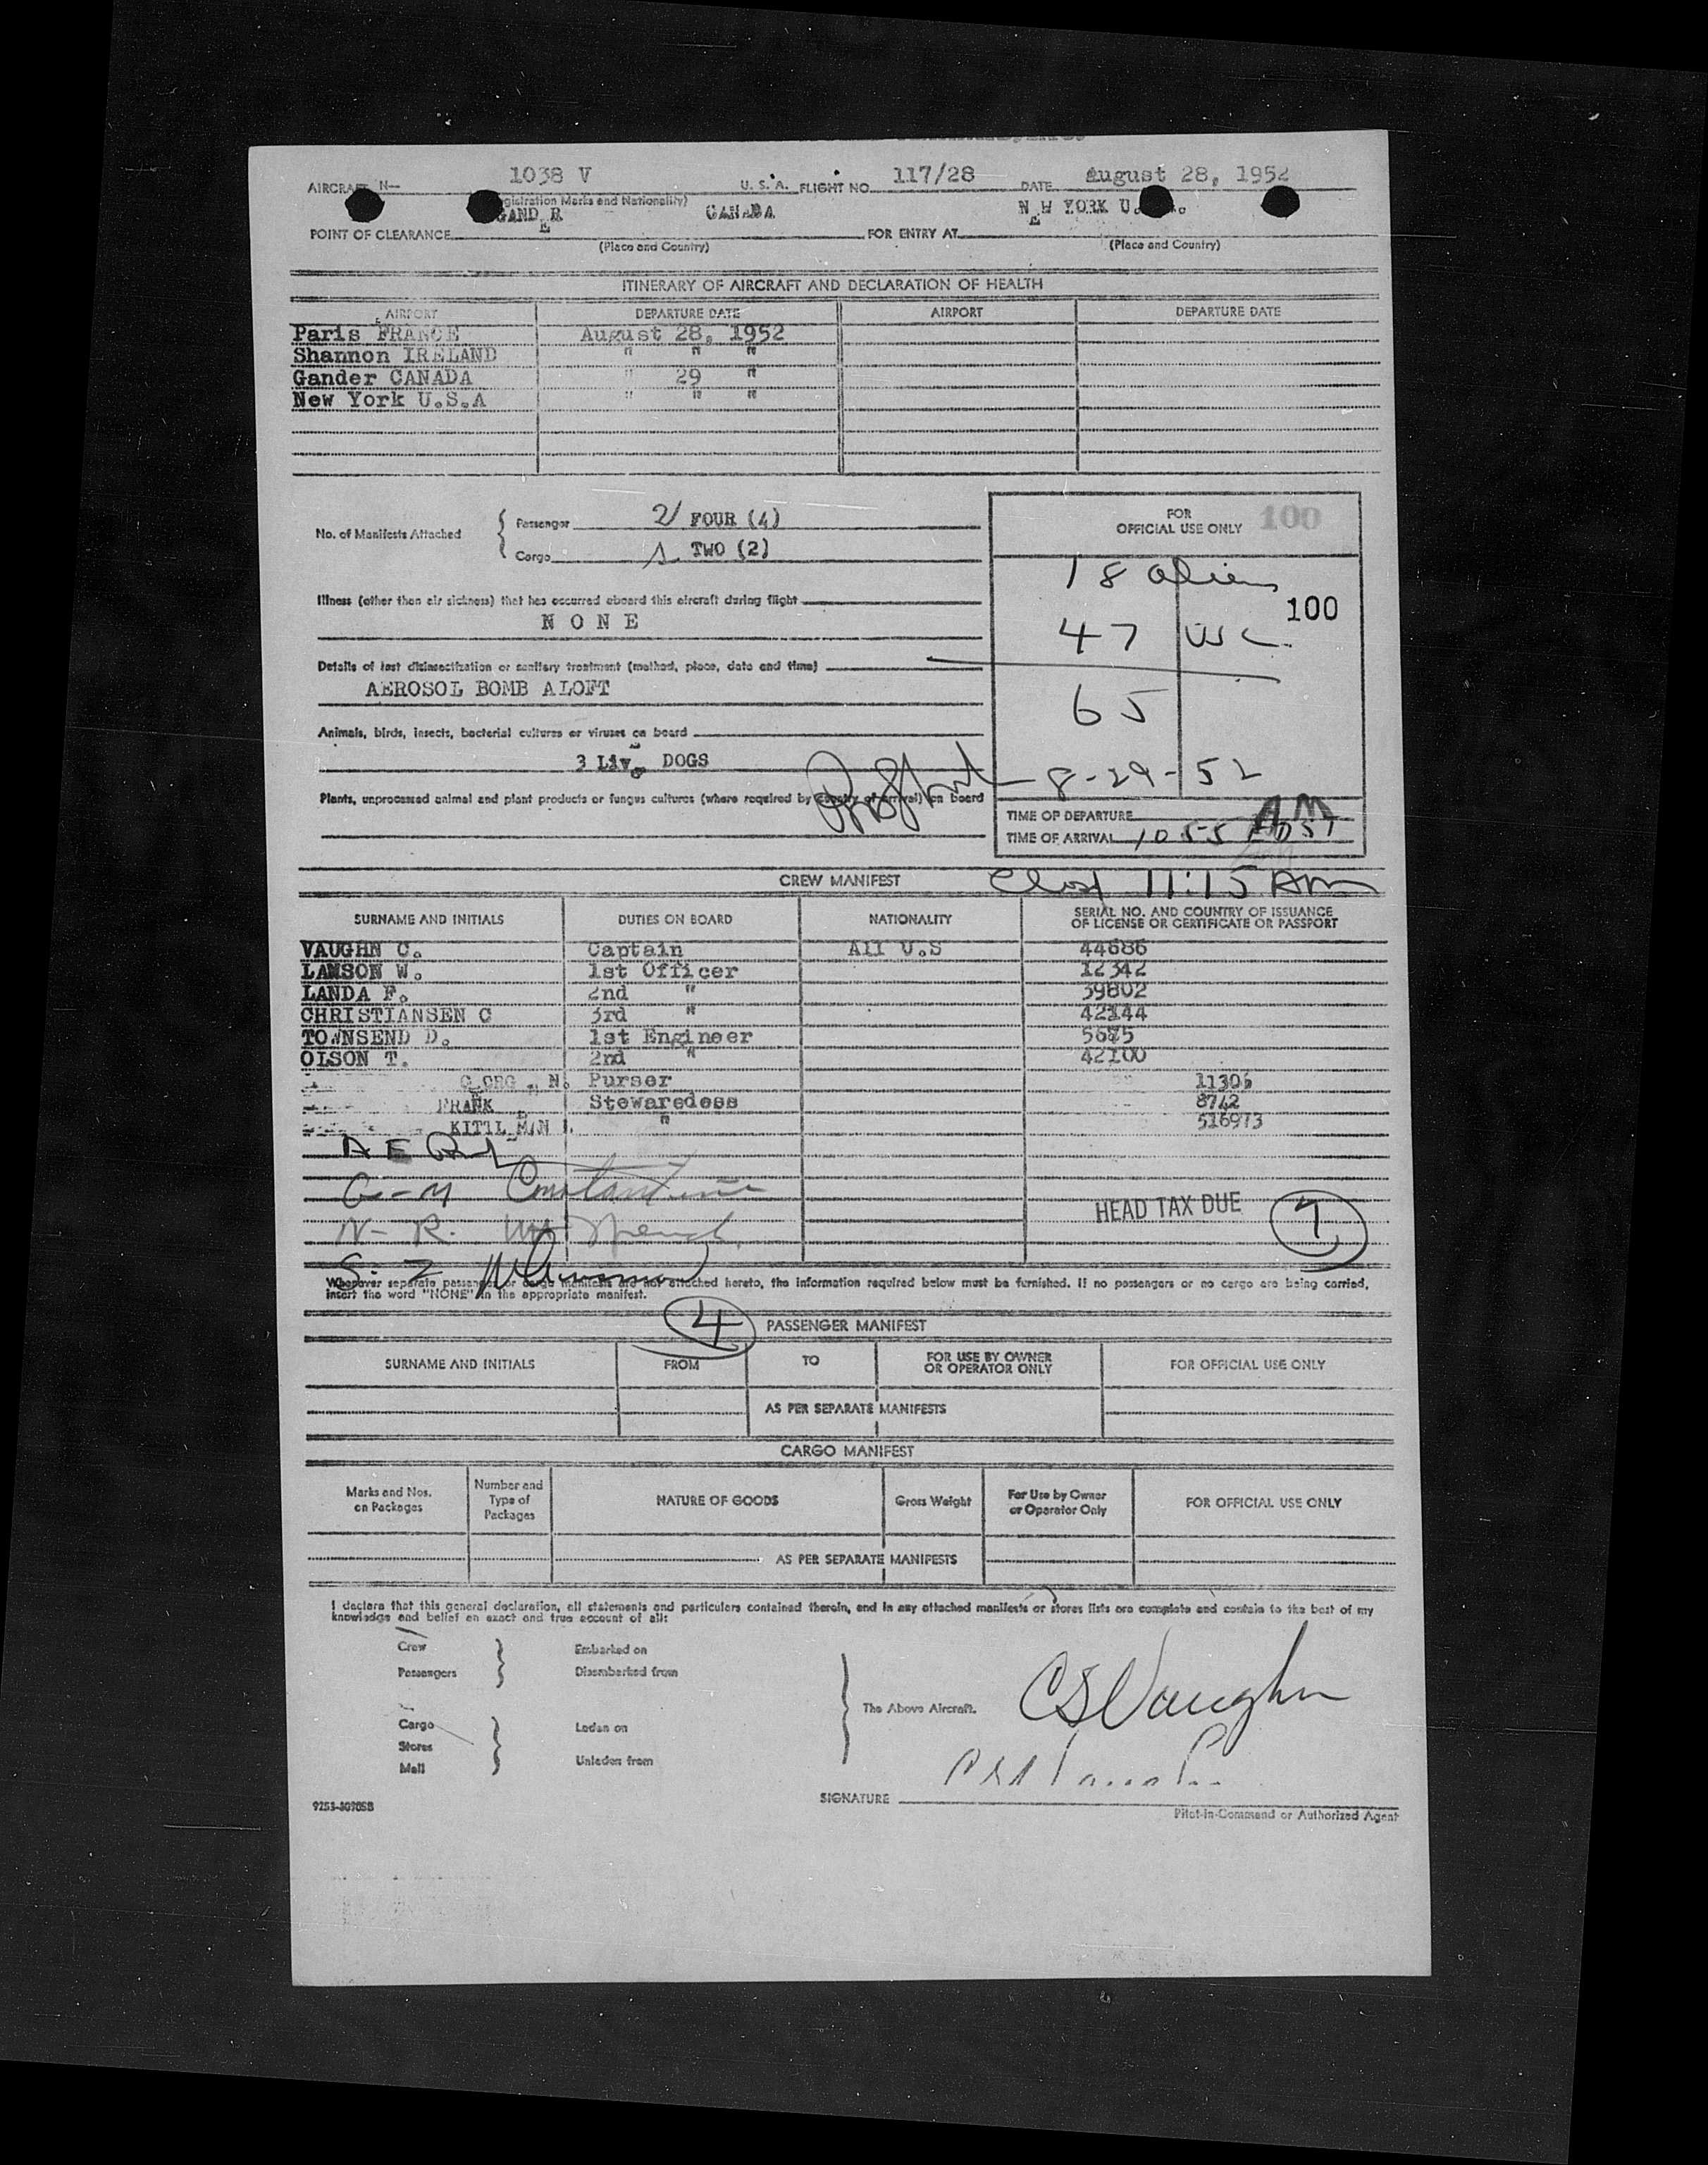 AIRCRAFT N— 1038 V U. S. A. FLIGHT NO. 117/28 DATE August 28, 1952
(Registration Marks and Nationality)
GANDER CANADA NEW YORK U.
POINT OF CLEARANCE FOR ENTRY AT
(Place and Country) (Place and Country)
ITINERARY OF AIRCRAFT AND DECLARATION OF HEALTH
AIRPORT DEPARTURE DATE AIRPORT DEPARTURE DATE
Paris FRANCE August 28, 1952
Shannon IRELAND " " "
Gander CANADA " 29 "
New York U.S.A " " "
No. of Manifests Attached
Passenger 2/ FOUR (4)
Cargo 1. TWO (2)
FOR
OFFICIAL USE ONLY 100
18 aliens
100
47 usc
65
8-29-52
Illness (other than air sickness) that has occurred aboard this aircraft during flight
N O N E
Details of last disinsectization or sanitary treatment (method, place, date and time)
AEROSOL BOMB ALOFT
Animals, birds, insects, bacterial cultures or viruses on board
3 Live DOGS
Plants, unprocessed animal and plant products or fungus cultures (where required by country of arrival) on board
TIME OF DEPARTURE AM
TIME OF ARRIVAL 1055 EDST
CREW MANIFEST 11:15 Am
SURNAME AND INITIALS DUTIES ON BOARD NATIONALITY SERIAL NO. AND COUNTRY OF ISSUANCE
OF LICENSE OR CERTIFICATE OR PASSPORT
VAUGHN C. Captain All U.S 44686
LAWSON W. 1st Officer 12342
LANDA F. 2nd " 39802
CHRISTIANSEN C 3rd " 42144
TOWNSEND D. 1st Engineer 5675
OLSON T. 2nd " 42100
N. Purser 11306
FRANK Stewaredess 8742
" 516973
A E
G-M Constantine
N-R.
S-Z
HEAD TAX DUE
Whenever separate passenger or cargo manifests are not attached hereto, the information required below must be furnished. If no passengers or no cargo are being carried,
insert the word "NONE" in the appropriate manifest.
4 PASSENGER MANIFEST
SURNAME AND INITIALS FROM TO FOR USE BY OWNER
OR OPERATOR ONLY FOR OFFICIAL USE ONLY
AS PER SEPARATE MANIFESTS
CARGO MANIFEST
Marks and Nos.
on Packages Number and
Type of
Packages NATURE OF GOODS Gross Weight For Use by Owner
or Operator Only FOR OFFICIAL USE ONLY
AS PER SEPARATE MANIFESTS
I declare that this general declaration, all statements and particulars contained therein, and in any attached manifests or stores lists are complete and contain to the best of my
knowledge and belief an exact and true account of all:
Crew Embarked on
Passengers Disembarked from
The Above Aircraft. CSVaughn
Cargo Laden on
Stores
Mail Unladen from
SIGNATURE
9253-80705B Pilot-in-Command or Authorized Agent